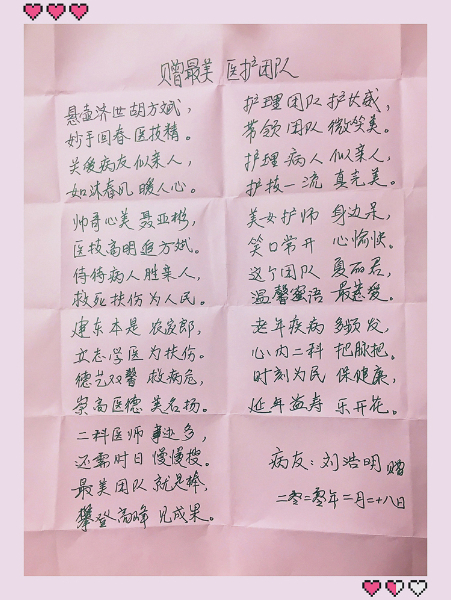 赠最美 医护团队
悬壶济世胡方斌，
妙手回春医技精。
关爱病友似亲人，
如沐春风暖人心。
帅哥心美聂亚彬，
医技高明追方斌。
侍侍病人胜亲人，
救死扶伤为人民。
建东本是农家郎，
立志学医为扶伤。
德艺双馨救病危，
崇高医德美名扬。
二科医师事迹多，
还需时日慢慢搜。
最美团队就是棒，
攀登高峰见成果。
护理团队护长威，
带领团队微笑美。
护理病人似亲人，
护技一流真完美。
美女护师身边呆，
笑口常开心愉快。
这个团队夏丽君，
温馨蜜语最慈爱。
老年疾病多频发，
心内二科把脉把。
时刻为民保健康，
延年益寿乐开花。
病友：刘浩明赠
二零二零年二月二十八日